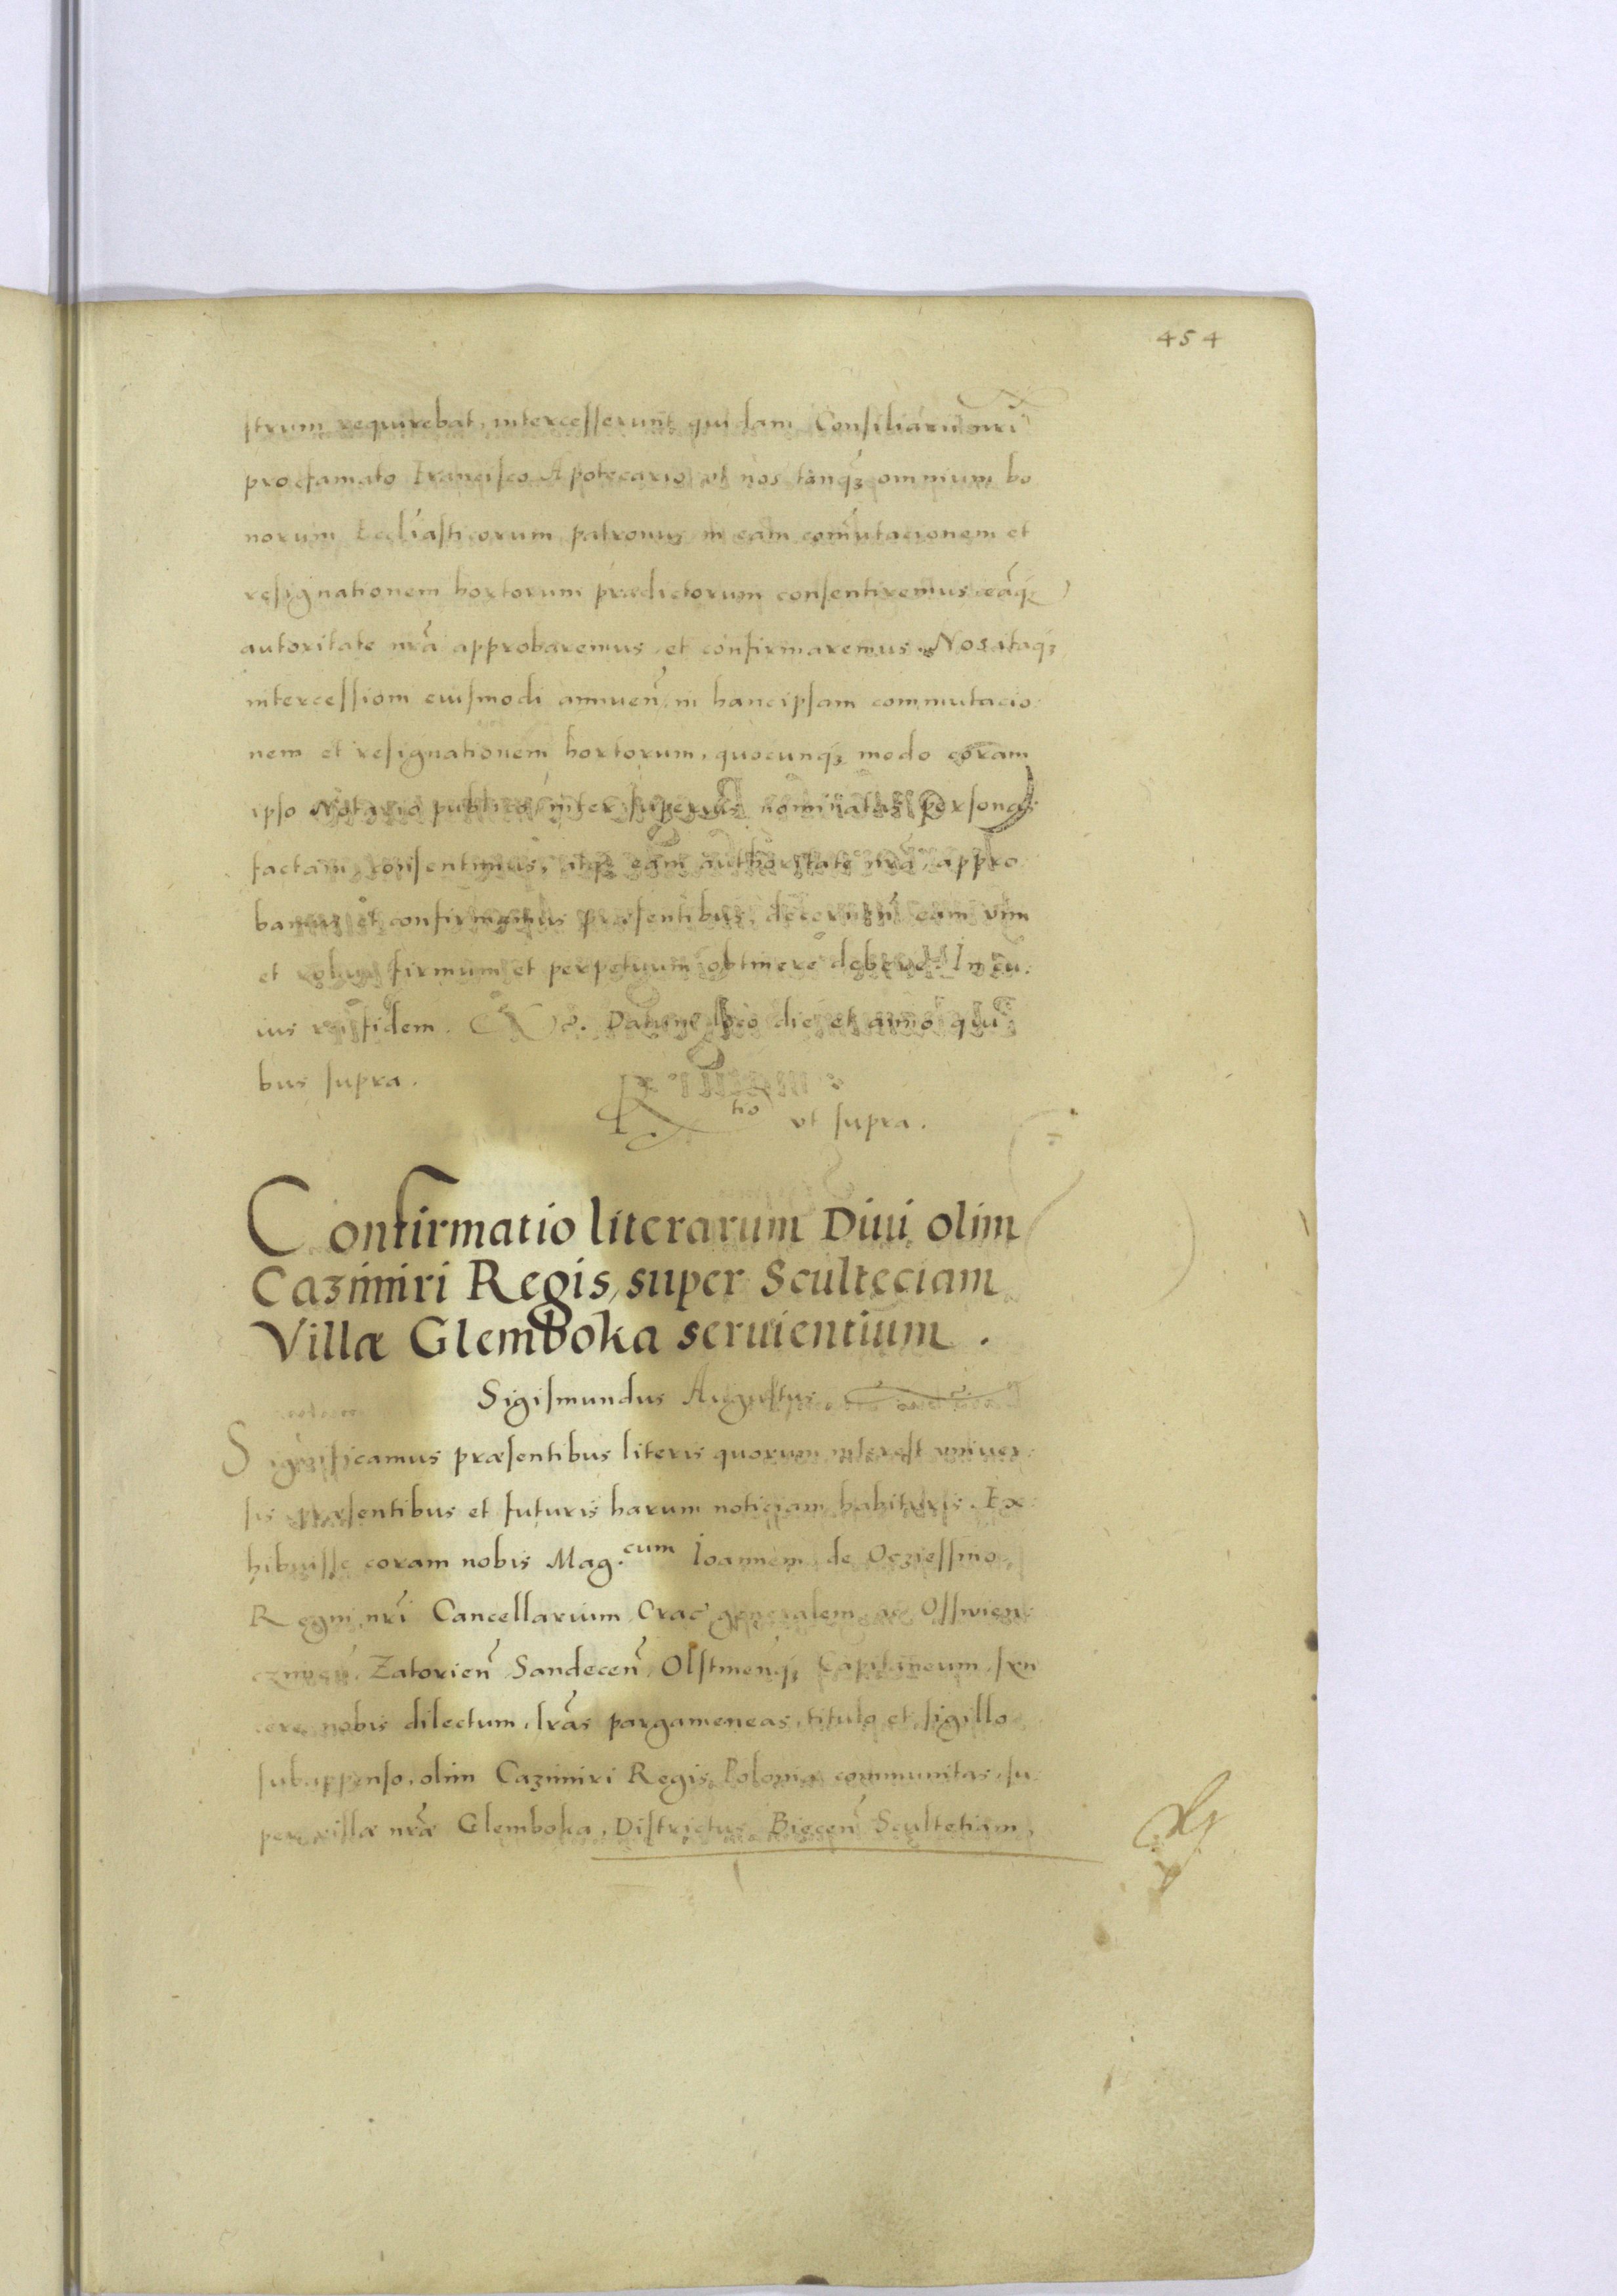 454
strum requirebat, intercesserunt quidam Consiliarii nr̃i
pro famato Francisco Apotecario, ut nos tanq̃ȝ omnium bo
norum Eccl̃iasticorum patronus in eam com̃utacionem et
resignationem hortorum prædictorum consentiremus eãq̃
autoritate nr̃a approbaremus et confirmaremus. Nos itaqȝ
intercessioni eiusmodi annuen̄. in hanc ipsam commutacio:
nem et resignationem hortorum, quocunqȝ modo coram
ipso Notario publico inter superius nominatas personas
factam, consentimus, atqȝ eam authoritate nr̃a, appro
bamus et confirmamus præsentibus, decernen̄ eam vim
et robur firmum et perpetuum obtinere debere. In cu:
ius rei fidem. Datum loco die et anno qui
bus supra.
R tio ut supra.
Confirmatio literarum Diui olim
Cazimiri Regis, super Sculteciam
Villæ Glemboka seruientium.
Sigismundus Augustus
Significamus præsentibus literis quorum interest vniuer:
sis præsentibus et futuris harum noticiam habituris. Ex:
hibuisse coram nobis Mag.cum Ioannem de Ocziessino,
Regni nr̃i Cancellarium Crac̄ generalem ac Osswien:
Zatorien̄ Sandecen̄, Olstinen̄qȝ Capitaneum, syn
cere nobis dilectum, lr̃as pargameneas, titulo et sigillo
subappenso, olim Cazimiri Regis Poloniæ communitas, su
per villæ nr̃æ Glemboka, Districtus Biecen̄ Scultetiam,